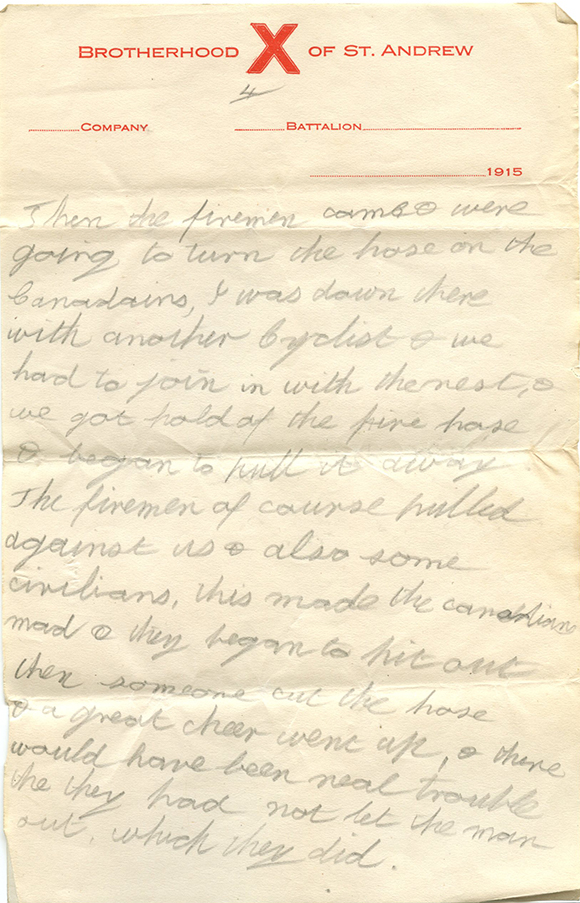 BROTHERHOOD X OF ST. ANDREW
4
COMPANY BATTALION
1915
Then the firemen came & were
going to turn the hose on the
Canadains, I was down there
with another Cyclist & we
had to join in with the rest, &
we got hold of the fire hose
& began to pull it away.
The firemen of course pulled
against us & also some
civilians, this made the Canadians
mad & they began to hit out
then someone cut the hose
& a great cheer went up, & there
would have been real trouble
the they had not let the man
out, which they did.